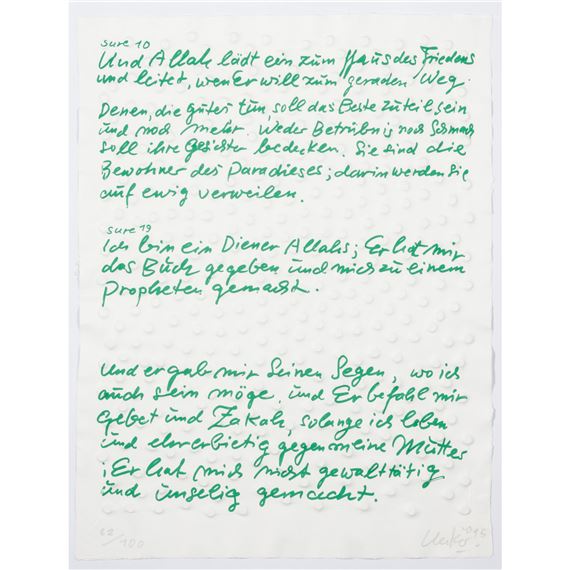 sure 10
Und Allah lädt ein zum Haus des Friedens
und leitet, wen Er will zum geraden Weg.
Denen, die gutes tun, soll das Beste zuteil sein
und noch mehr. Weder Betrübnis noch Schmach
soll ihre Gesichter bedecken. Sie sind die
Bewohner des Paradieses; darin werden Sie
auf ewig verweilen.
sure 19
Ich bin ein Diener Allahs; Er hat mir
das Buch gegeben und mich zu einem
Propheten gemacht.
Und er gab mir Seinen Segen, wo ich
auch sein möge, und Er befahl mir
Gebet und Zakah, solange ich leben
und ehrerbietig gegen meine Mutter
; Er hat mich nicht gewalttätig
und unselig gemacht.
62/100
Uecker 015